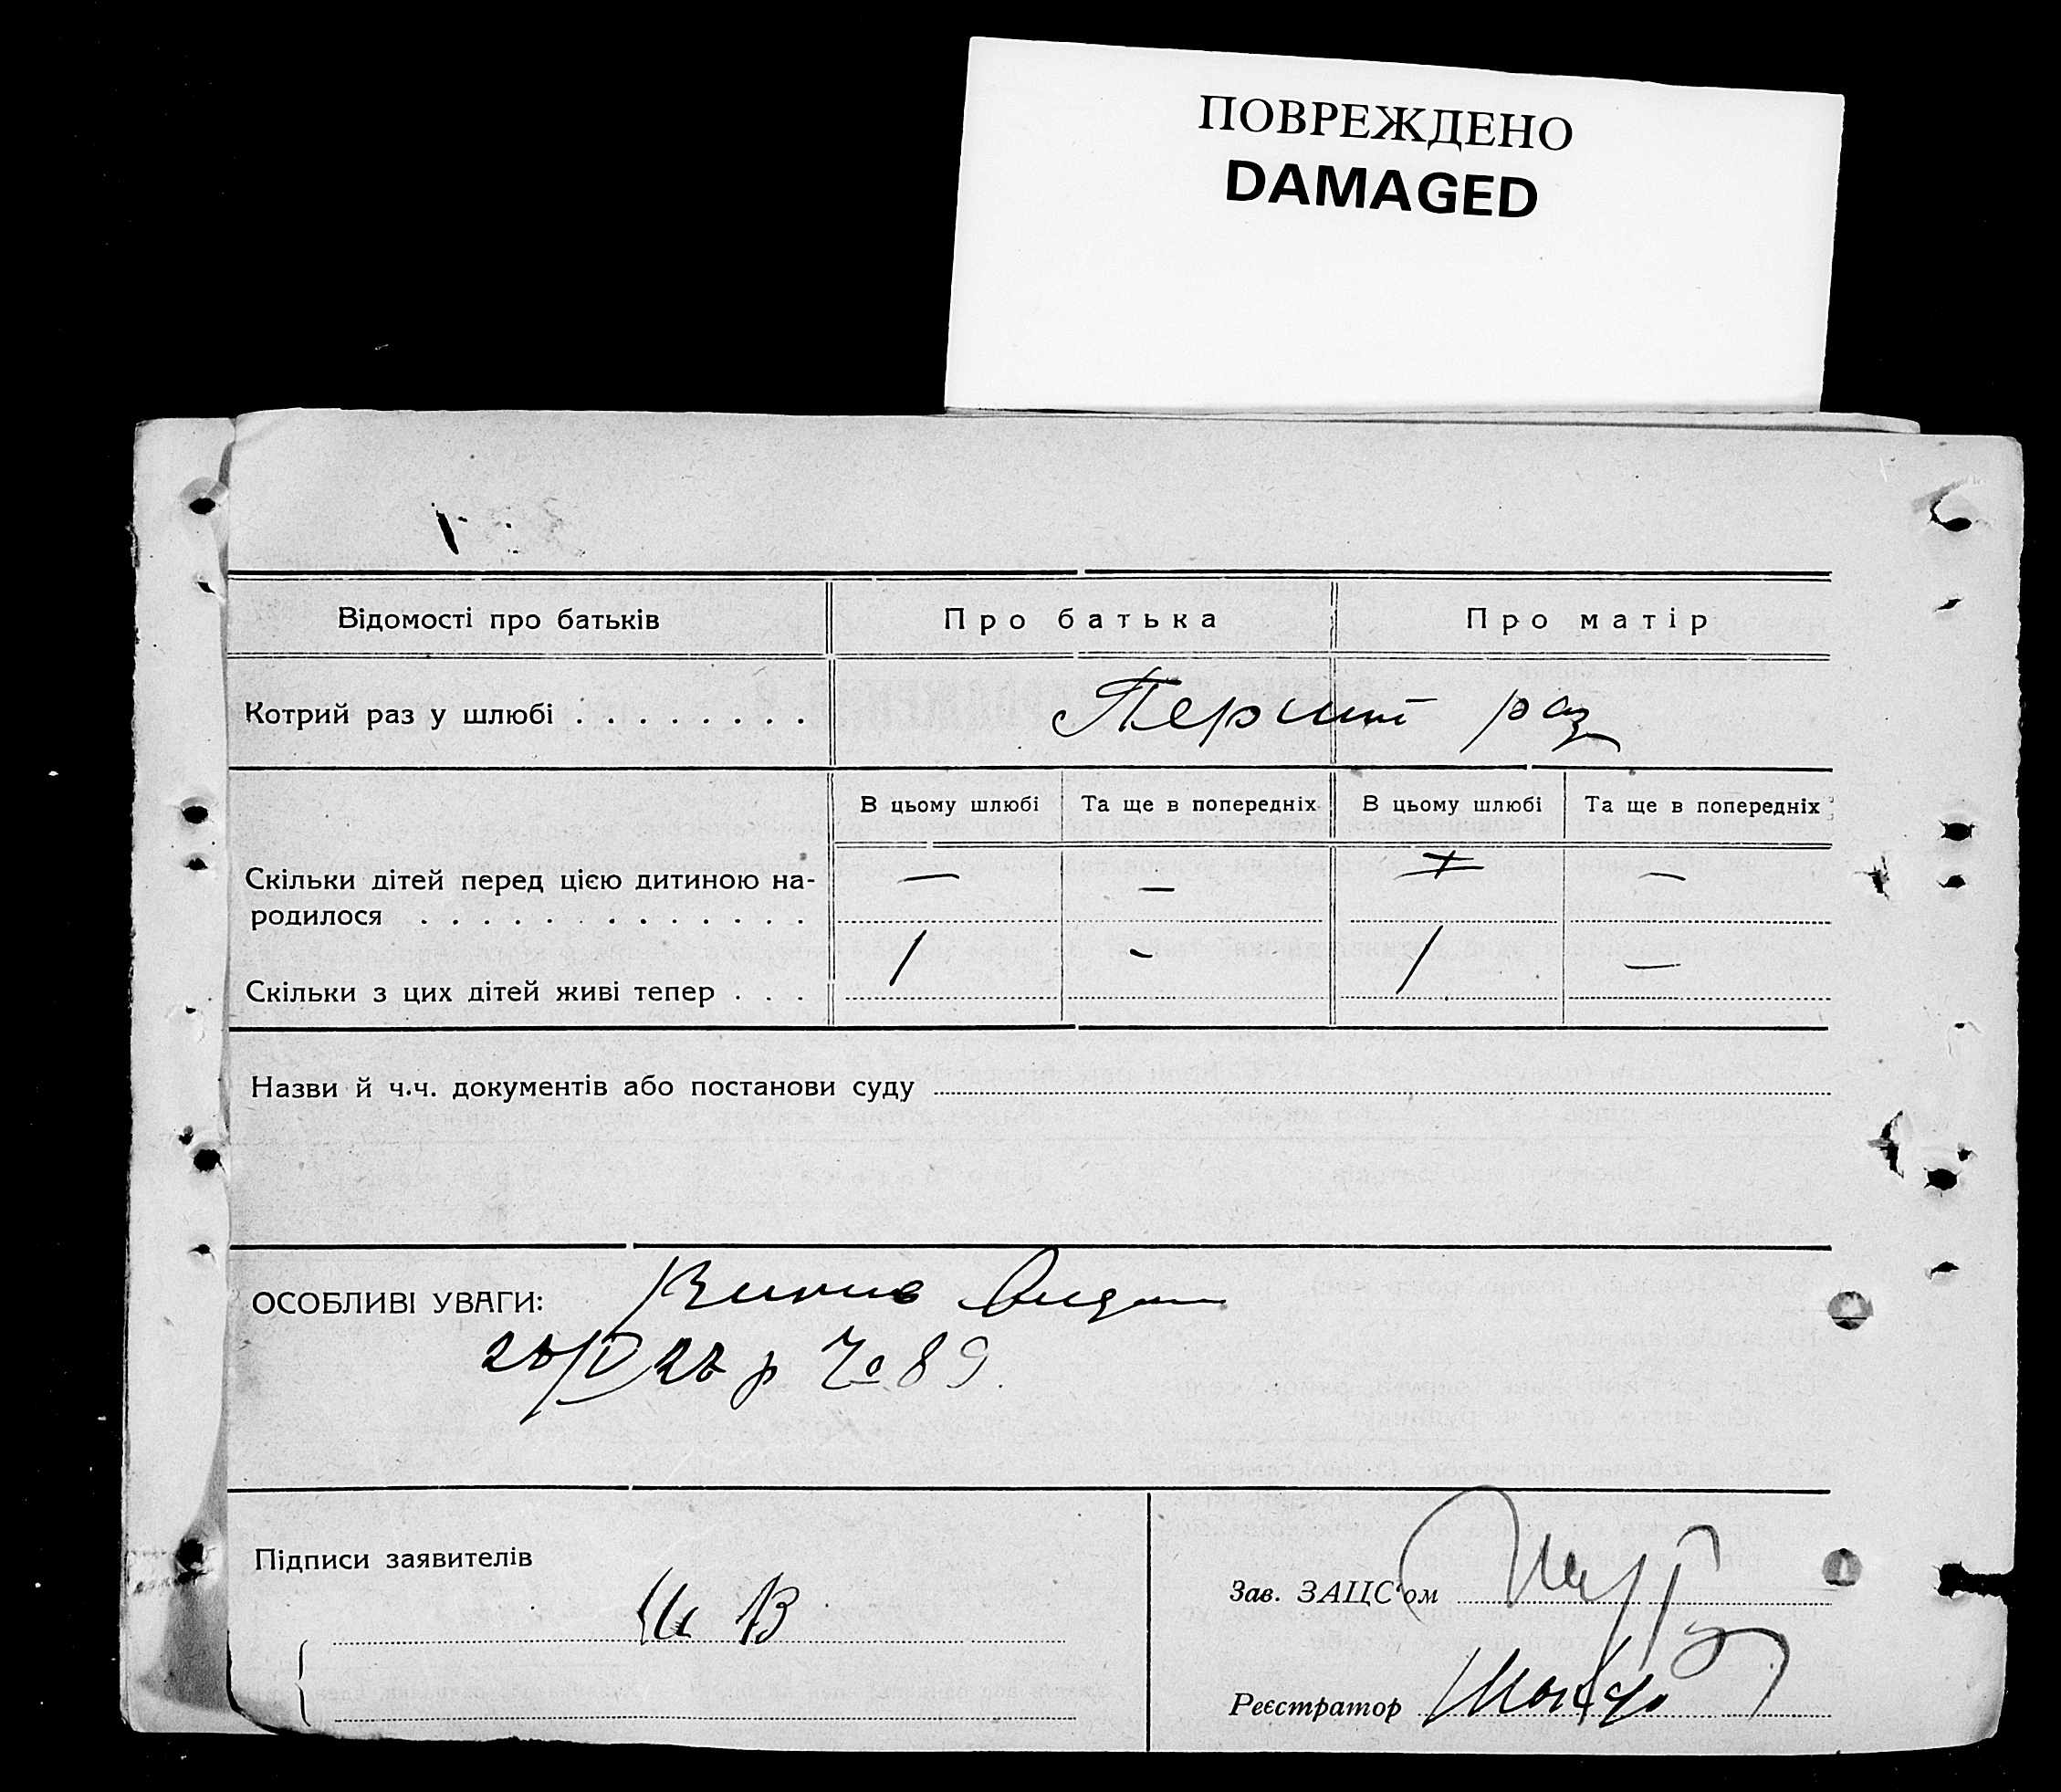 ПОВРЕЖДЕНО
DAMAGED
Відомості про батьків Про батька Про матір
Котрий раз у шлюбі . . . . . . . . Перший раз
В цьому шлюбі Та ще в попередніх В цьому шлюбі Та ще в попередніх
Скільки дітей перед цією дитиною на-
родилося . . . . . . . . . . . . . — — — —
Скільки з цих дітей живі тепер . . . 1 - 1 —
Назви й ч.ч. документів або постанови суду
ОСОБЛИВІ УВАГИ:
№ 89.
Підписи заявителів
Зав. ЗАЦС'ом
Реєстратор